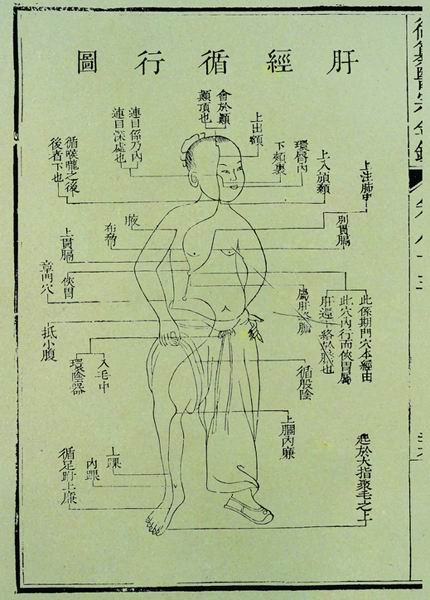 肝經循行圖
御纂醫宗金鑑
上注肺中
上入頏顙
環唇內
下頰裏
上出額
會於巔
巔頂也
連目係乃內
連目深處也
循喉嚨之後
後者下也
別貫膈
腋
布脅
上貫膈
俠胃
章門穴
抵小腹
環陰器
入毛中
此係期門穴本經由
此穴內行而俠胃屬
屬肝絡膽
循股陰
上膕內廉
起於大指聚毛之上
上踝
內踝
循足跗上廉